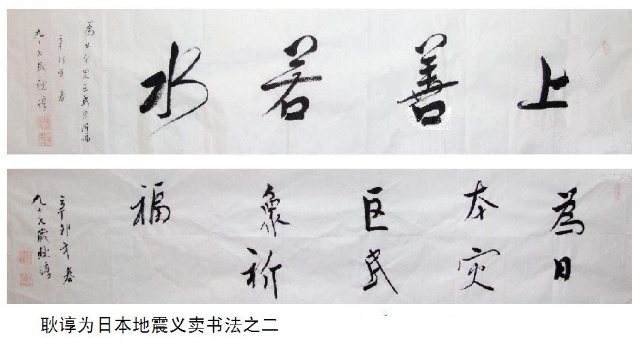 上善若水
為日本灾区民眾祈福
辛卯年春
九十七歲耿諄
為日
本灾
区民
眾祈
福
辛卯年春
九十七歲耿諄
耿谆为日本地震义卖书法之二